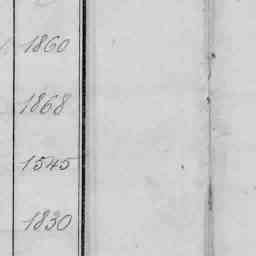 1860
1868
1545
1830